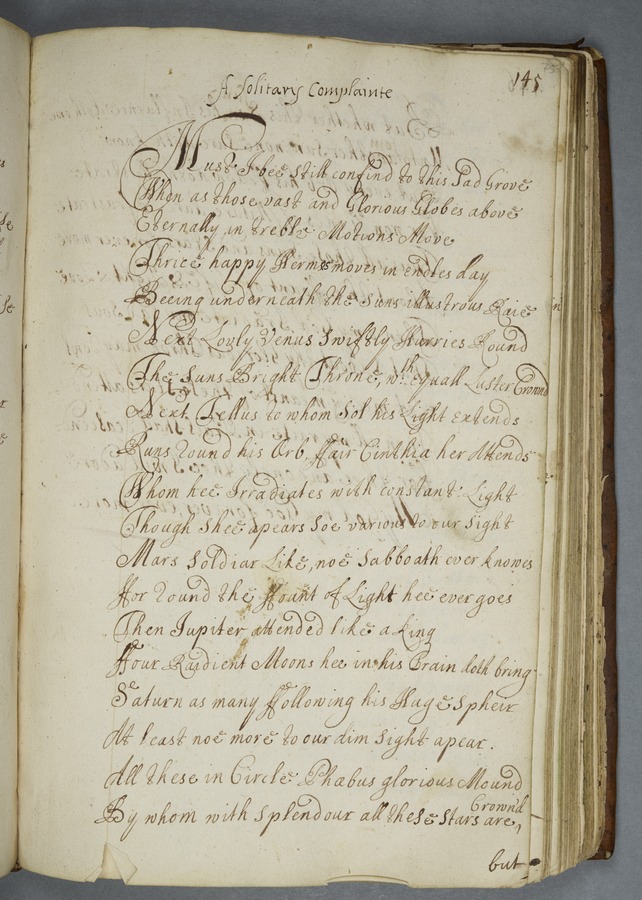 145
A Solitary Complainte
Must I bee still confind to this Sad Grove
When as those vast and Glorious Globes above
Eternally in treble Motions Move
Thrice happy Hermes moves in endles day
Beeing underneath the suns illustrous Raie
Next Lovly Venus swiftly Hurries Round
The Suns Bright Throne, wth equall Luster Crownd
Next Tellus to whom Sol his Light extends
Runs round his Orb, ffair Cinthia her Attends
Whom hee Irradiates with constant Light
Though shee apears soe various to our sight
Mars Soldiar Like, noe Sabboath ever knowes
ffor round the ffount of Light hee ever goes
Then Jupiter attended like a King
ffour Raidient Moons hee in his Train doth bring
Saturn as many ffollowing his Huge Spheir
At least noe more to our dim sight apear.
All these in Circle Phœbus glorious Mound
By whom with splendour all these Stars are Crownd
but